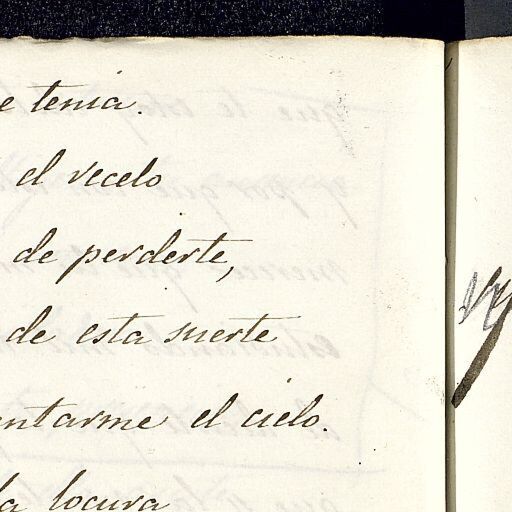 e tenia.
el recelo
de perderte,
de esta suerte
ntarme el cielo.
la locura